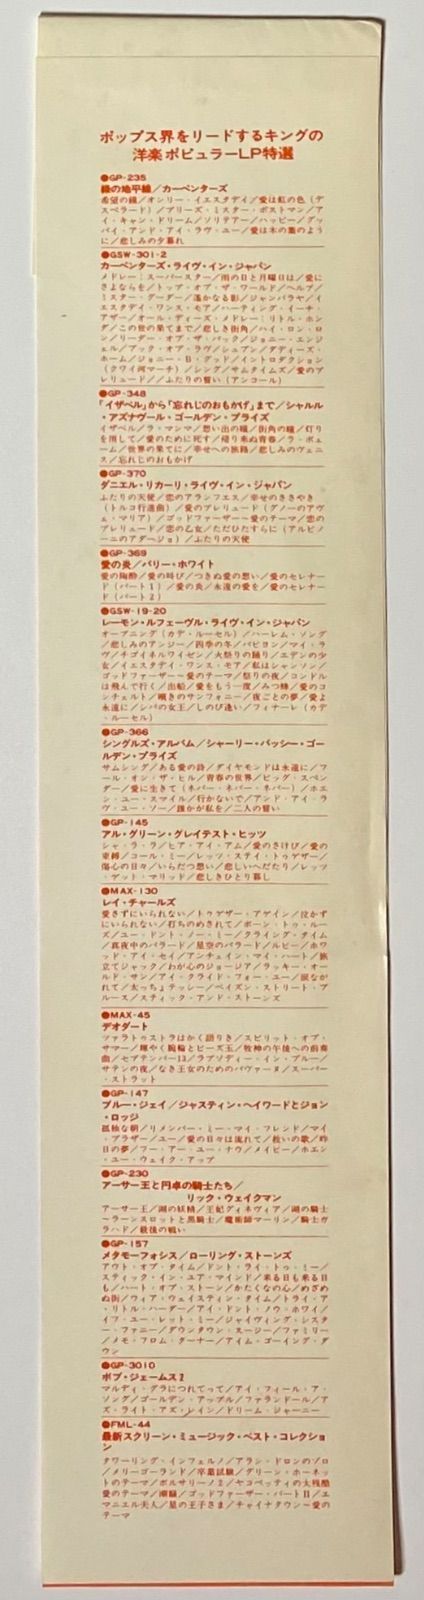 ポップス界をリードするキングの
洋楽ポピュラーLP特選
●GP-235
緑の地平線／カーペンターズ
希望の鐘／オンリー・イエスタデイ／愛は虹の色（デ
スペラード）／プリーズ・ミスター・ポストマン／ア
イ・キャン・ドリーム／ソリテアー／ハッピー／グッ
バイ・アンド・アイ・ラヴ・ユー／愛は木の葉のよう
に／悲しみの夕暮れ
●GSW-301-2
カーペンターズ・ライヴ・イン・ジャパン
メドレー：スーパースター／雨の日と月曜日は／愛に
さよならを／トップ・オブ・ザ・ワールド／ヘルプ／
ミスター・グーダー／遙かなる影／ジャンバラヤ／イ
エスタデイ・ワンス・モア／ハーティング・イーチ・
アザー／オール・ディーズ・メドレー：リトル・ホン
ダ／この世の果てまで／悲しき街角／ハイ・ロン・ロ
ン／リーダー・オブ・ザ・パック／ジョニー・エンジ
ェル／ブック・オブ・ラヴ／シュアン／ダディーズ・
ホーム／ジョニー・B・グッド／イントロダクション
（クワイ河マーチ）／シング／サムタイムズ／愛のプ
レリュード／／ふたりの誓い（アンコール）
●GP-348
「イザベル」から「忘れじのおもかげ」まで／シャルル
・アズナヴール・ゴールデン・プライズ
イザベル／ラ・マンマ／想い出の瞳／街角の瞳／灯り
を消して／愛のために死す／帰り来ぬ青春／ラ・ボェ
ーム／世界の果てに／幸せへの旅路／悲しみのヴェニ
ス／忘れじのおもかげ
●GP-370
ダニエル・リカーリ・ライヴ・イン・ジャパン
ふたりの天使／恋のアランフエス／幸せのささやき
（トルコ行進曲）／愛のプレリュード（グノーのアヴ
ェ・マリア）／ゴッドファーザー〜愛のテーマ／恋の
プレリュード／恋の乙女／ただひたすらに（アルビノ
ーニのアダージョ）／ふたりの天使
●GP-369
愛の炎／バリー・ホワイト
愛の陶酔／愛の叫び／つきぬ愛の想い／愛のセレナー
ド（パート1）／愛の炎／永遠の愛を／愛のセレナー
ド（パート2）
●GSW-19-20
レーモン・ルフェーヴル・ライヴ・イン・ジャパン
オープニング（カデ・ルーセル）／ハーレム・ソング
／悲しみのアンジー／四季の冬／パピヨン／マイ・ラ
ヴ／チゴイネルワイゼン／火祭りの踊り／エデンの少
女／イエスタデイ・ワンス・モア／私はシャンソン／
ゴッドファーザー〜愛のテーマ／祭りの夜／コンドル
は飛んで行く／出船／愛をもう一度／みつ蜂／愛のコ
ンチェルト／嘆きのサンフォニー／夜ごとの夢／愛よ
永遠に／シバの女王／しのび逢い／フィナーレ（カデ
・ルーセル）
●GP-366
シングルズ・アルバム／シャーリー・バッシー・ゴー
ルデン・プライズ
サムシング／ある愛の詩／ダイヤモンドは永遠に／フ
ール・オン・ザ・ヒル／青春の世界／ビッグ・スペン
ダー／愛に生きて（ネバー・ネバー・ネバー）／ホエ
ン・ユー・スマイル／行かないで／アンド・アイ・ラ
ヴ・ユー・ソー／誰かが私を／二人の誓い
●GP-145
アル・グリーン・グレイテスト・ヒッツ
シャ・ラ・ラ／ヒア・アイ・アム／愛のさけび／愛の
束縛／コール・ミー／レッツ・ステイ・トゥゲザー／
傷心の日々／いらだつ想い／悲しいへだたり／レッツ
・ゲット・マリッド／悲しきひとり暮し
●MAX-130
レイ・チャールズ
愛さずにいられない／トゥゲザー・アゲイン／泣かず
にいられない／打ちのめされて／ボーン・トゥ・ルー
ズ／ユー・ドント・ノー・ミー／クライング・タイム
／真夜中のバラード／星空のバラード／ルビー／ホワ
ッド・アイ・セイ／アンチェイン・マイ・ハート／旅
立てジャック／わが心のジョージア／ラッキー・オー
ルド・サン／アイ・クライド・フォー・ユー／涙なが
れて／太っちょテッシー／ベイズン・ストリート・ブ
ルース／スティック・アンド・ストーンズ
●MAX-45
デオダート
ツァラトゥストラはかく語りき／スピリット・オブ・
サマー／輝やく腕輪とビーズ玉／牧神の午後への前奏
曲／セプテンバー13／ラプソディー・イン・ブルー／
サテンの夜／なき王女のためのパヴァーヌ／スーパー
・ストラット
●GP-147
ブルー・ジェイ／ジャスティン・ヘイワードとジョン
・ロッジ
孤独な朝／リメンバー・ミー・マイ・フレンド／マイ
・ブラザー／ユー／愛の日々は流れて／救いの歌／昨
日の夢／フー・アー・ユー・ナウ／メイビー／ホエン
・ユー・ウェイク・アップ
●GP-230
アーサー王と円卓の騎士たち／
リック・ウェイクマン
アーサー王／湖の妖精／王妃グィネヴィア／湖の騎士
〜ラーンスロットと黒騎士／魔術師マーリン／騎士ガ
ラハド／最後の戦い
●GP-157
メタモーフォシス／ローリング・ストーンズ
アウト・オブ・タイム／ドント・ライ・トゥ・ミー／
スティック・イン・ユア・マインド／来る日も来る日
も／ハート・オブ・ストーン／かたくなの心／めざめ
ぬ街／ウィア・ウェイスティン・タイム／トライ・ア
・リトル・ハーダー／アイ・ドント・ノウ・ホワイ／
イフ・ユー・レット・ミー／ジャイヴィング・シスタ
ー・ファニー／ダウンタウン・スージー／ファミリー
／メモ・フロム・ターナー／アイム・ゴーイング・ダ
ウン
●GP-3010
ボブ・ジェームス2
マルディ・グラにつれてって／アイ・フィール・ア・
ソング／ゴールデン・アップル／ファランドール／ア
ズ・ライト・アズ・レイン／ドリーム・ジャーニー
●FML-44
最新スクリーン・ミュージック・ベスト・コレクショ
ン
タワーリング・インフェルノ／アラン・ドロンのゾロ
／メリーゴーランド／卒業試験／グリーン・ホーネッ
トのテーマ／ボルサリーノ2／ヤコペッティの大残酷
愛のテーマ／潮騒／ゴッドファーザー・パートII／エ
マニエル夫人／星の王子さま／チャイナタウン〜愛の
テーマ